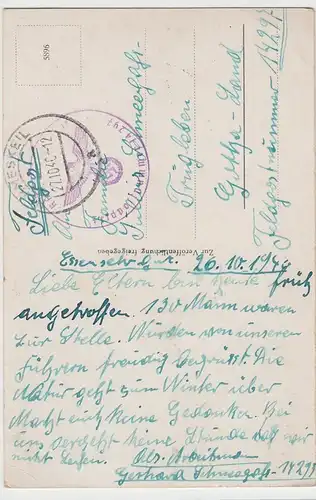 5596
Feldpost
21.10.44.-12
An
Familie
Schneegaß-
Trügleben
Gotha-Land
Feldpostnummer 14297
Zur Veröffentlichung freigegeben
20.10.1944
Liebe Eltern bin heute früh
angetroffen. 130 Mann waren
zur Stelle. Wurden von unseren
Führern freudig begrüsst. Die
Natur geht zum Winter über
Macht euch keine Gedanken. Bei
uns vergeht keine Stunde daß wir
nicht
Gerhard Schneegaß-14297